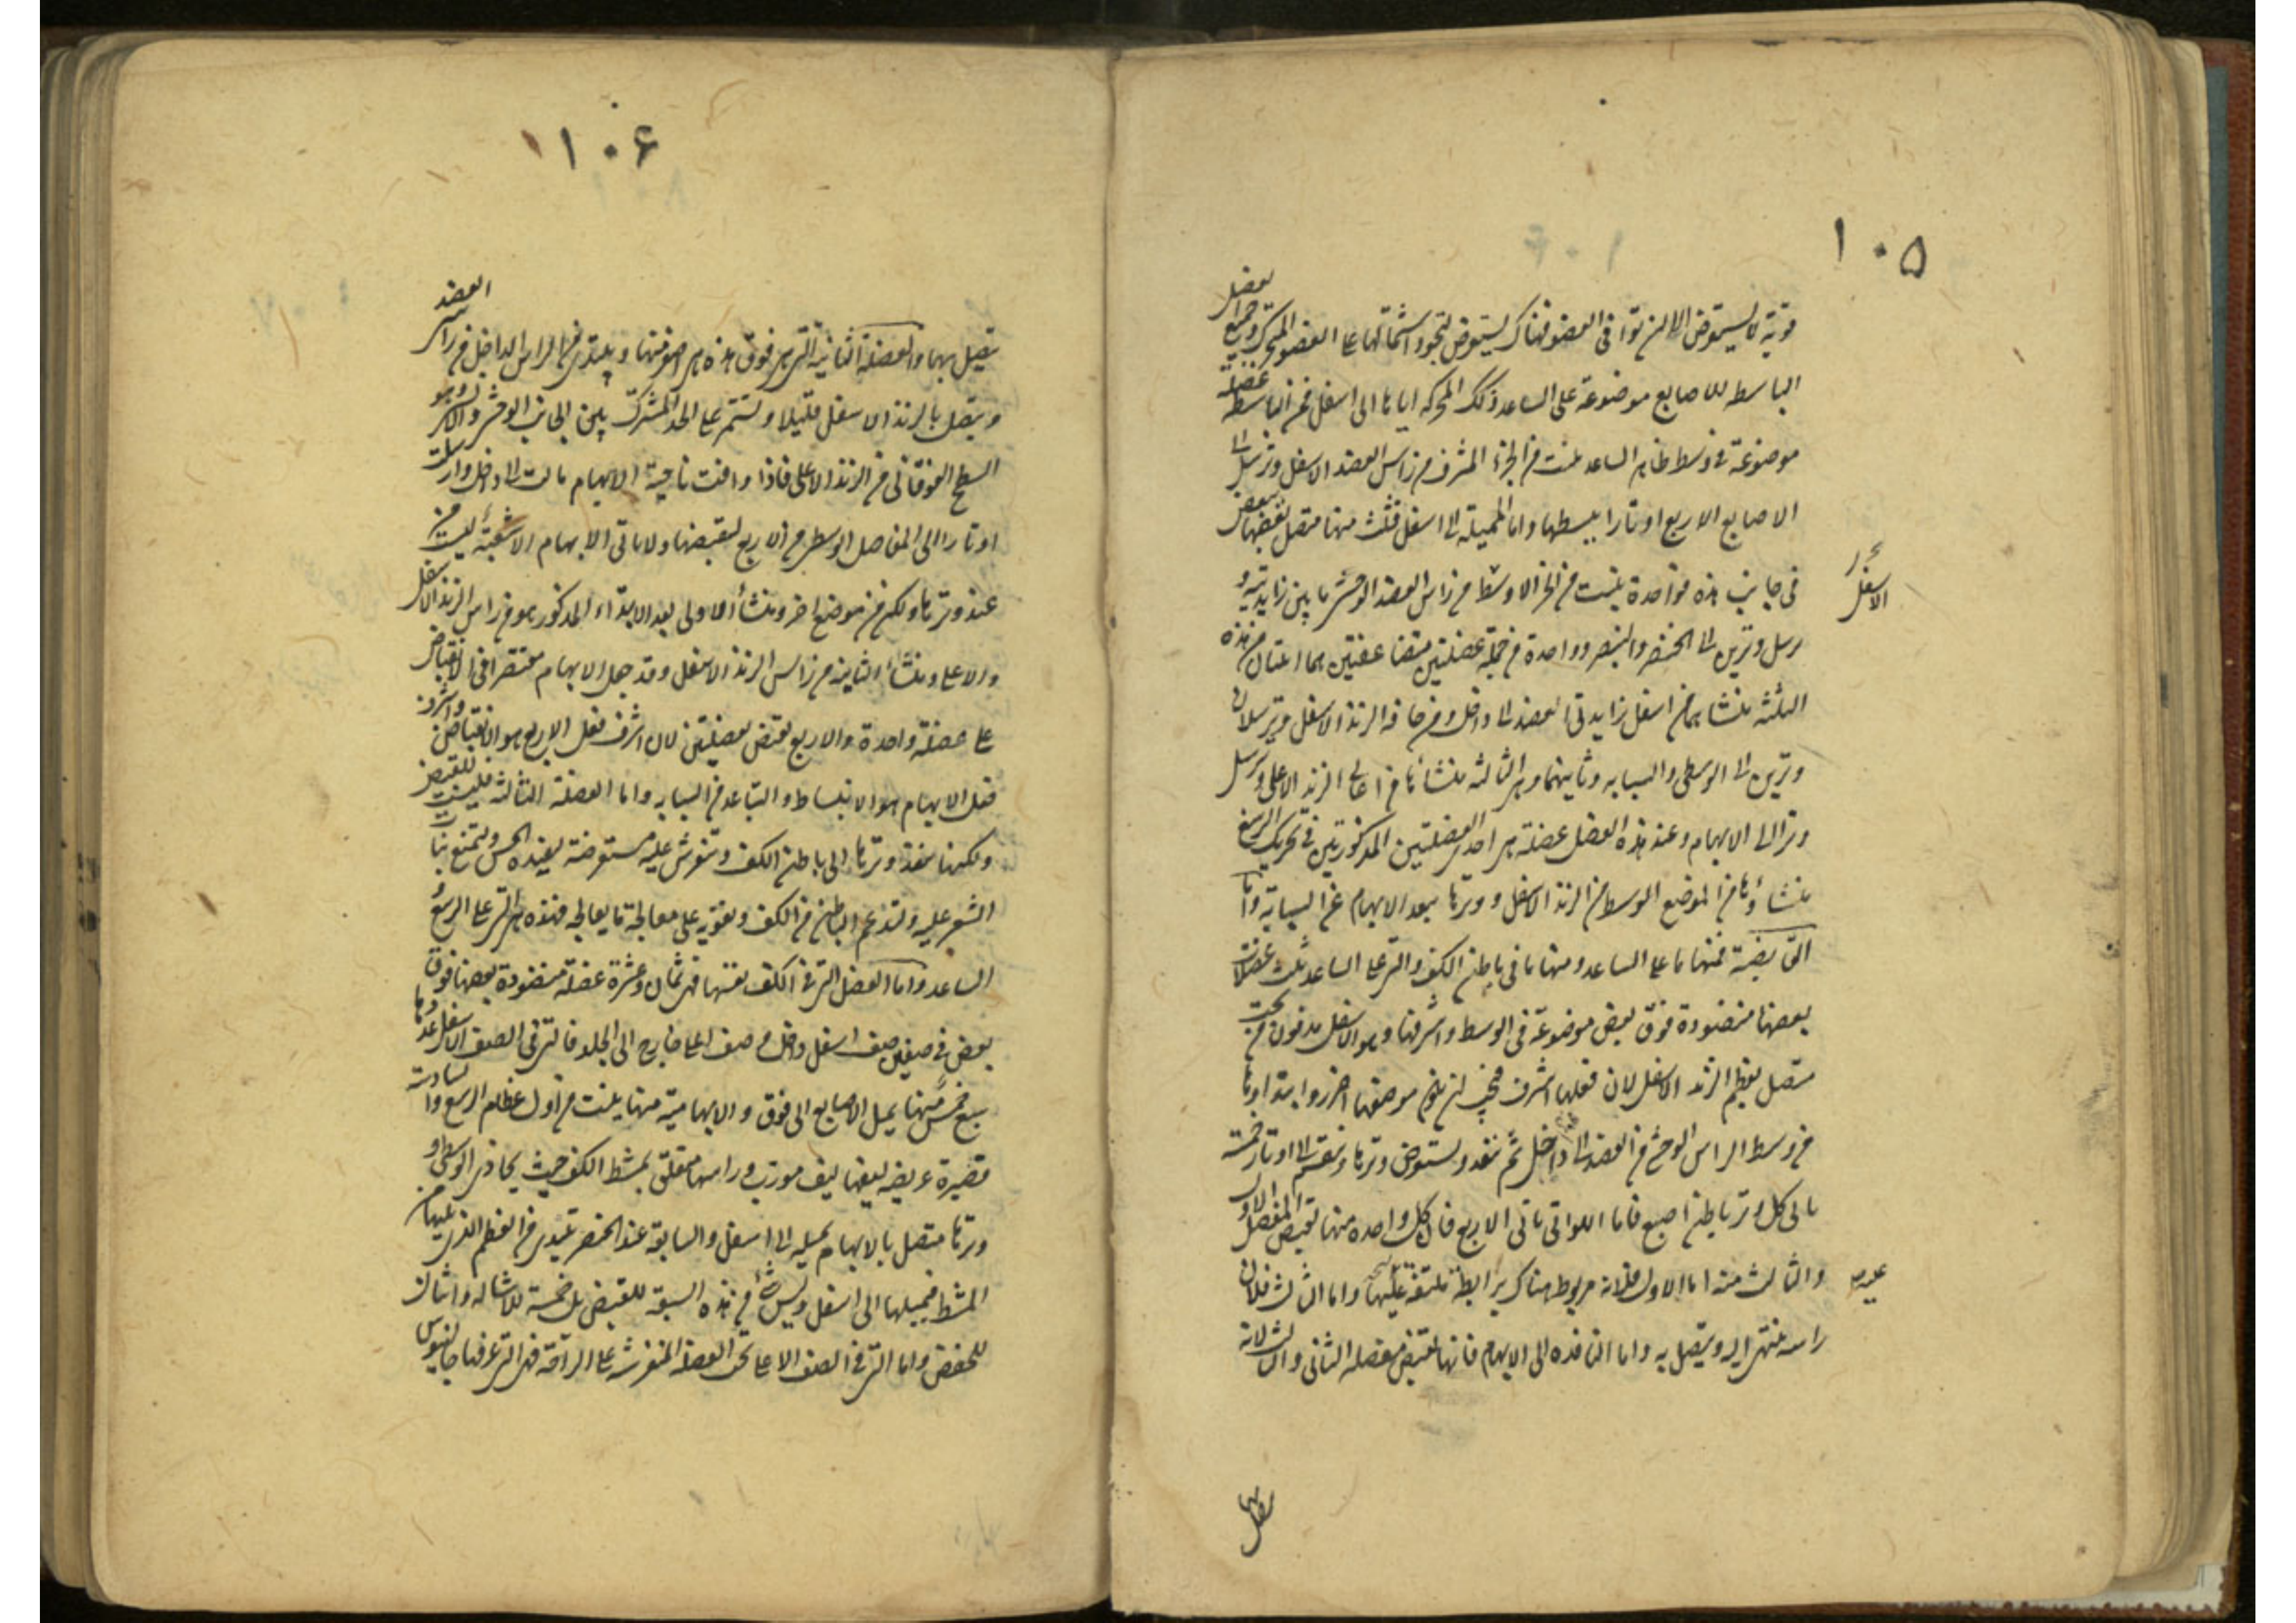 ١٠٥
قوية لا يستعرض الا ان توافى العضو فهناك يستعرض لتجود اشتمالها على العضو المحرك وجميع العضل
الباسطة للاصابع موضوعة على الساعد وكذلك المحركة اياها الى اسفل فمن الباسطة عضلة
موضوعة فى وسط ظاهر الساعد ينبت من الجزء المشرف من راس العضد الاسفل وترسل الى
الاصابع الاربع اوتارا يبسطها واما المميلة الى اسفل فثلث منها متصل بعضها ببعض
فى جانب هذه فواحدة ينبت من الجزء الاوسط من راس العضد الوحشى ما بين زايدتيه و
الاسفل
يرسل وترين الى الخنصر والبنصر وواحدة من جملة عضلتين متضاعفتين هما اثنتان من هذه
الثلثة منشاهما من اسفل زايدتى العضد الى داخل ومن حافة الزند الاسفل ويرسلان
وترين الى الوسطى والسبابه وثانيتهما وهى الثالثة منشاها من اعالى الزند الاعلى وترسل
وترا الى الابهام وعند هذه العضل عضلة هى احدى العضلتين المذكورتين فى تحريك الرسغ
منشاؤها من الموضع الوسط من الزند الاسفل ووترها يبعد الابهام عن السبابة واما
القابضة فمنها ما على الساعد ومنها ما فى باطن الكف والتى على الساعد ثلث عضلات
بعضها منضودة فوق بعض موضوعة فى الوسط واشرفها وهو الاسفل مدفون من تحت
متصل بعظم الزند الاسفل لان فعلها اشرف فيجب ان يكون موضعها احرز وابتداوها
من وسط الراس الوحشى من العضد الى داخل ثم تنفذ ويستعرض وترها وينقسم الى اوتار خمسة
ياتى كل وتر باطن اصبع فاما اللواتى تاتى الاربع فان كل واحدة منها تقبض المفصل الاول
والثالث منه اما الاول فلانه مربوط هناك برابطة ملتفة عليها واما الثالث فلان
راسه ينتهى اليه ويتصل به واما النافذه الى الابهام فانها تقبض مفصله الثانى والثالث لانه
١٠٦
يتصل بهما والعضلة الثانية التى هى فوق هذه هى اصغر منها ويبتدى من الراس الداخل من راس العضد
ويتصل بالزند الاسفل قليلا وتستمر على الحد المشترك بين الجانب الوحشى والانسى وهو
السطح الفوقانى من الزند الاعلى فاذا وافت ناحية الابهام مالت الى داخل وارسلت
اوتارا الى المفاصل الوسطى من الاربع لتقبضها ولا ياتى الابهام الا شعبة ليست من
عند وترها ولكن من موضع اخر ومنشأ الاولى بعد الابتداء المذكور هو من راس الزند الاسفل
والاعلى ومنشأ الثانية من راس الزند الاسفل وقد جعل الابهام مقتصرا فى الانقباض
على عضلة واحدة والاربع تقبض بعضلتين لان اشرف فعل الاربع هو الانقباض واشرف
فعل الابهام هو الانبساط والتباعد من السبابه واما العضلة الثالثة فليست للقبض
ولكنها تنفذ وترها الى باطن الكف وتنفرش عليه مستعرضة ليفيده الحس ولتمنع نبات
الشعر عليه ولتدعم الباطن من الكف وتقويه على معالجة ما يعالج فهذه هى التى على الرسغ
الساعد واما العضل التى فى الكف نفسها فهى ثمان وعشرة عضلة منضودة بعضها فوق
بعض فى صفين صف اسفل داخل وصف اعلى خارج الى الجلد فالتى فى الصف الاسفل عددها
سبع خمس منها يميل الاصابع الى فوق والابهامية منها ينبت من اول عظام الرسغ والسادسة
قصيرة عريضة ليفها ليف مورب وراسها متعلق بمشط الكف حيث يحاذى الوسطى و
وترها متصل بالابهام يميله الى اسفل والسابعة عند الخنصر تبتدى من العظم الذى يليها من
المشط فيميلها الى اسفل وليس شئ من هذه السبعة للقبض بل خمسة للاشاله واثنان
للخفض واما التى فى الصف الاعلى تحت العضلة المنفرشة على الراحة فهى التى عرفها جالينوس